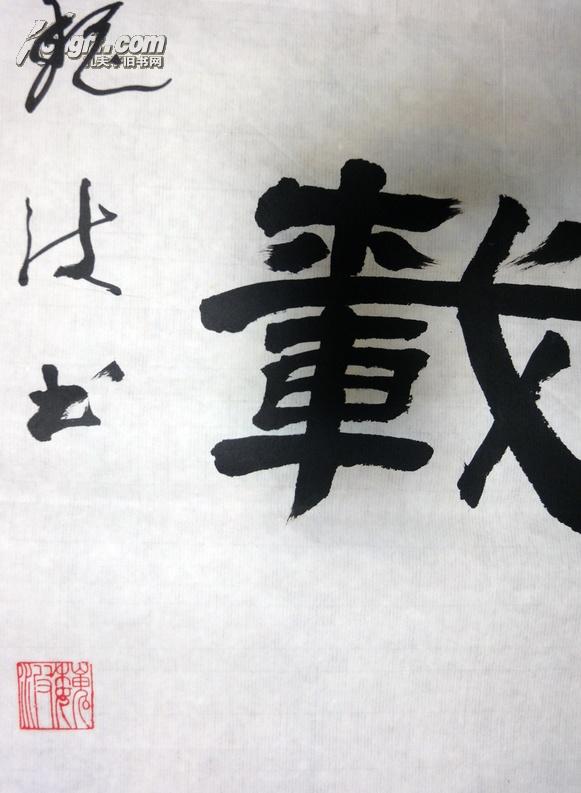 kongfz.com
孔夫子旧书网
載
魏波书